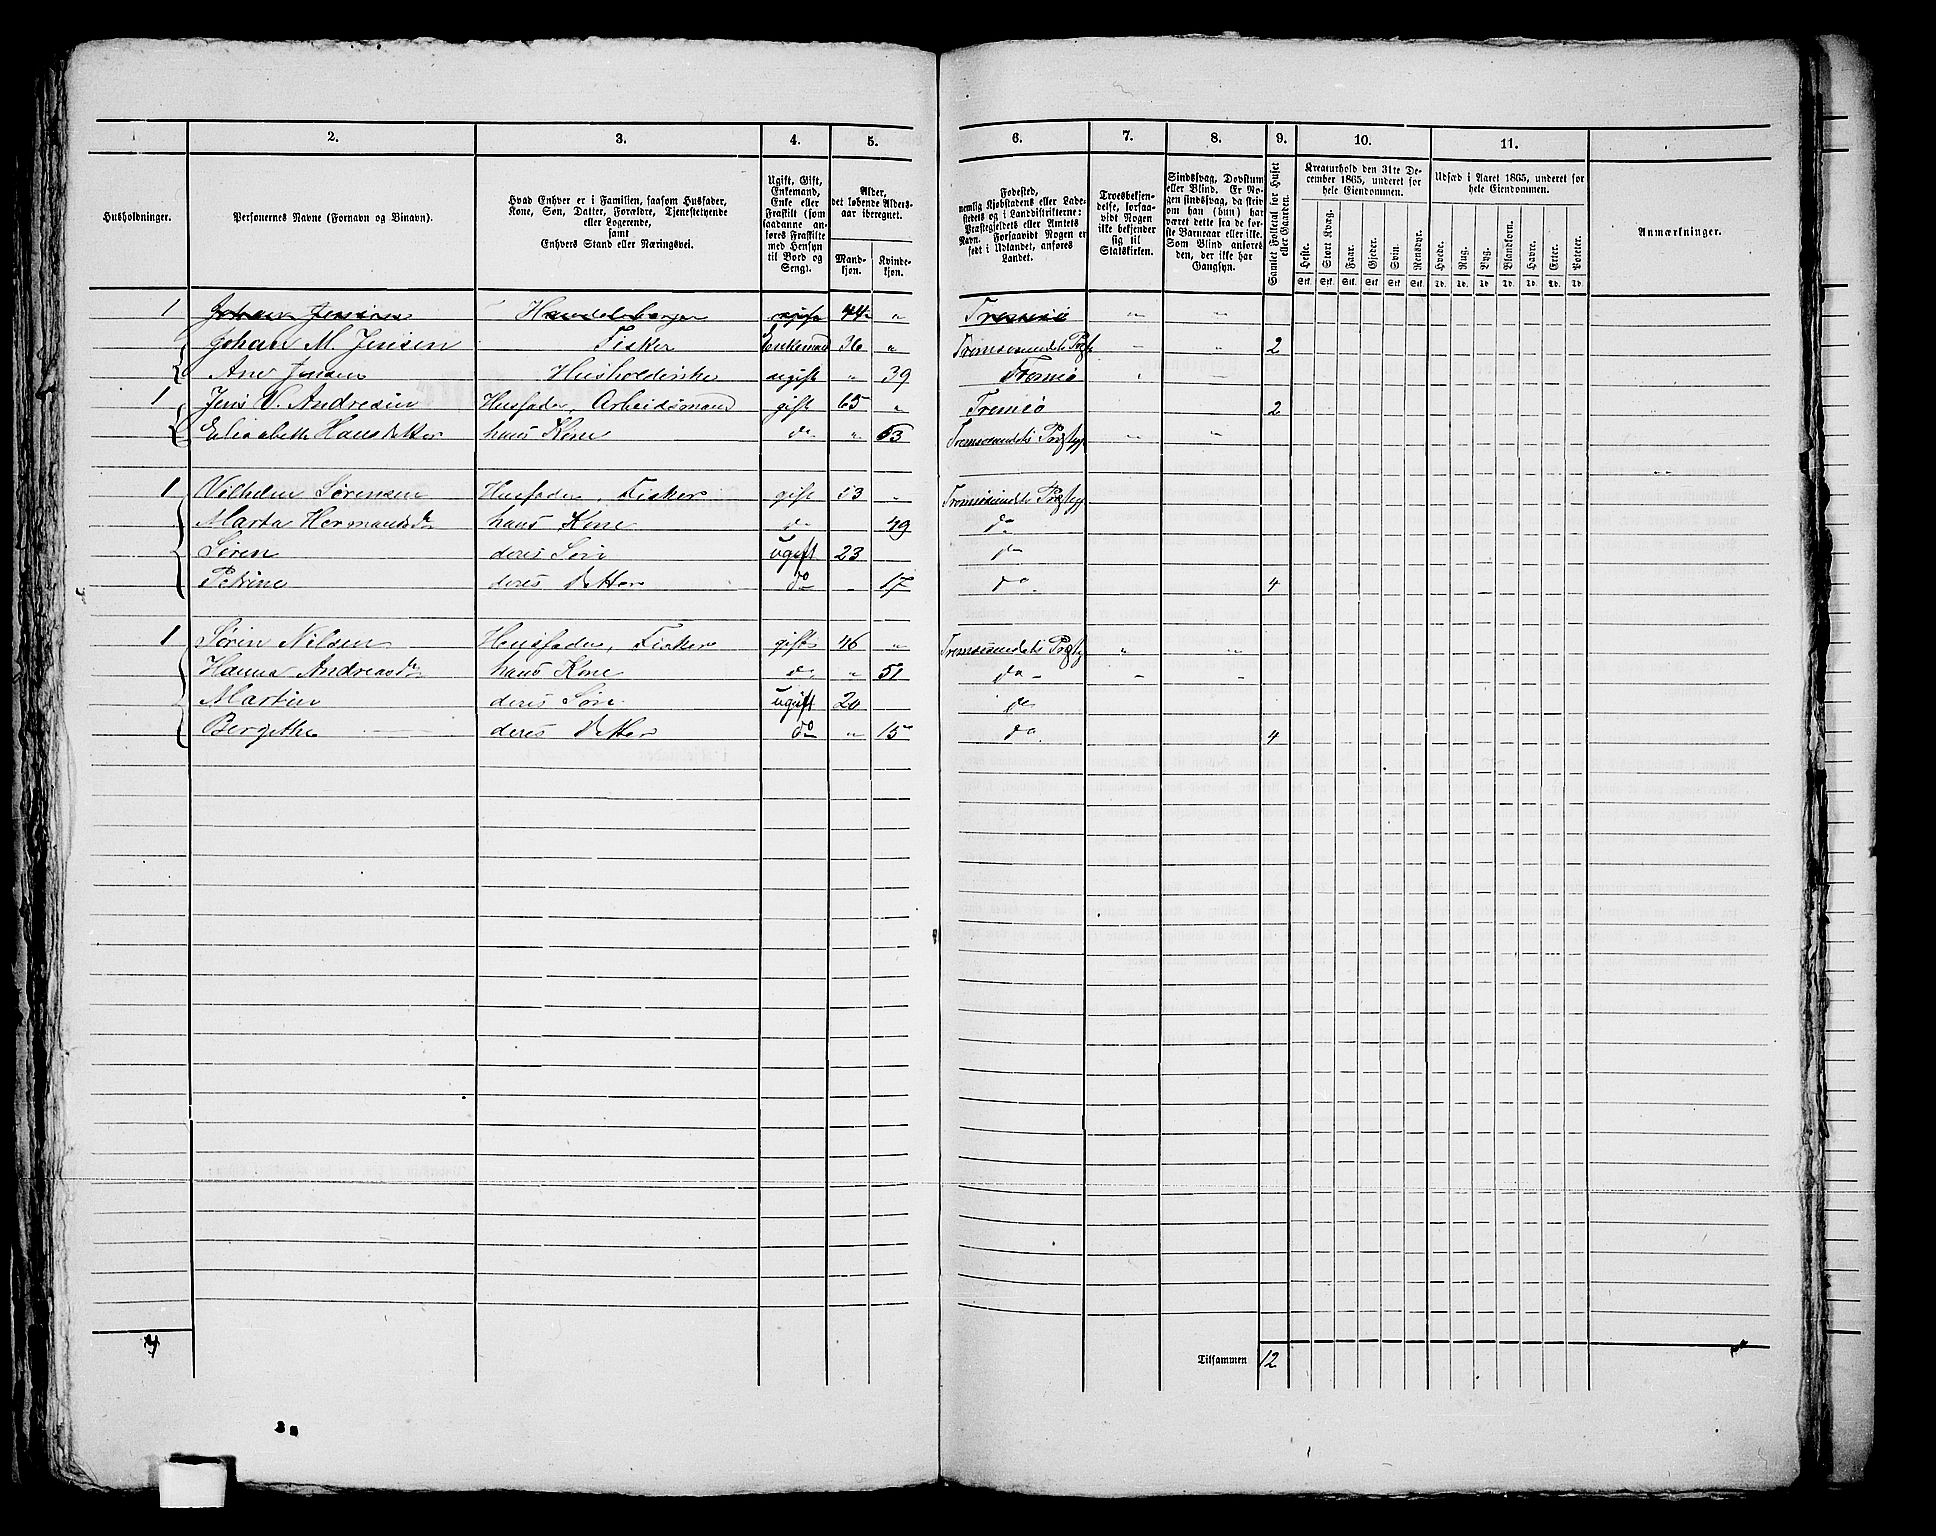 1 2. 3. 4. 5. 6. 7. 8. 9. 10. 11.
Husholdninger.
Personernes Navne (Fornavn og Binavn).
Hvad Enhver er i Familien, saasom Husfader,
Kone, Søn, Datter, Forældre, Tjenestetyende
eller Logerende,
samt
Enhvers Stand eller Næringsvei.
Ugift, Gift,
Enkemand,
Enke eller
Fraskilt (som
saadanne an-
føres Fraskilte
med Hensyn
til Bord og
Seng).
Alder,
det løbende Alders-
aar iberegnet.
Mand-
kjøn.
Kvinde-
kjøn.
Fødested,
nemlig Kjøbstadens eller Lade-
stedets og i Landdistrikterne:
Præstegjeldets eller Amtets
Navn. Forsaavidt Nogen er
født i Udlandet, anføres
Landet.
Troesbekjen-
delse, forsaa-
vidt Nogen
ikke bekjender
sig til
Statskirken.
Sindssvag, Døvstum
eller Blind. Er No-
gen sindssvag, da skriv
om han (hun) har
været dette fra de for-
ste Barneaar eller ikke.
Som Blind anføres
den, der ikke har
Gangsyn.
Samlet Folketal for Huset
eller Gaarden.
Kreaturhold den 31te De-
cember 1865, underet for
hele Eiendommen.
Heste. Stort Kvæg. Faar. Gjeder. Svin. Rensdyr.
Stk. Stk. Stk. Stk. Stk. Stk.
Udsæd i Aaret 1865, underet for
hele Eiendommen.
Hvede. Rug. Byg. Blandkorn. Havre. Erter. Poteter.
Td. Td. Td. Td. Td. Td. Td.
Anmærkninger.
1 Johan Jensen Handelsborger ugift 44 " Tromsø " "
Johan M. Jensen Fisker Enkemand 36 " Tromsøsundets 2
Ane Jensen Husholderske ugift " 39 Tromsø
1 Jens V. Andresen Husfader, Arbeidsmand gift 65 " Tromsø 2
Elisabeth Hansdatter hans Kone do " 53 Tromsøsundets
1 Vilhelm Sørensen Husfader, Fisker gift 53 " Tromsøsundets
Marta Hermansd hans Kone do 49 do
Søren deres Søn ugift 23 do
Petrine deres Datter do 17 do 4
1 Søren Nilsen Husfader, Fisker gift 46 " Tromsøsundets " "
Hanna Andreasd hans Kone do " 51 do
Martin deres Søn ugift 20 do
Bergithe deres Datter do " 15 do 4
4
Tilsammen 12